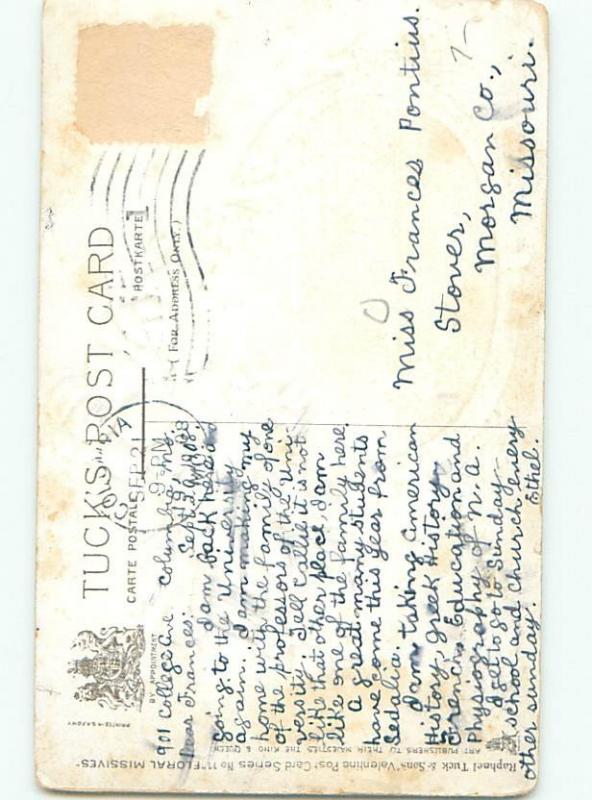 TUCK'S POST CARD
CARTE POSTALE
POSTKARTE
(FOR ADDRESS ONLY.)
BY APPOINTMENT
PRINTED IN SAXONY
SEP 21
901 College Ave Columbia, Mo.
Sept
Dear Frances:
I am back here
going to the University
again. I am making my
home with the family of one
of the professors of the Uni-
versity. Tell Callie it is not
like that other place, I am
like one of the family here.
A great many students
have come this year from
Sedalia.
I am taking American
History, Greek History,
French, Education and
Physiography of N. A.
I get to go to Sunday-
school and church every
other sunday. Ethel.
Miss Frances Pontius.
Stover,
Morgan Co.,
Missouri.
Raphael Tuck & Sons' Valentine Post Card Series No 11 "FLORAL MISSIVES"
ART PUBLISHERS TO THEIR MAJESTIES THE KING & QUEEN